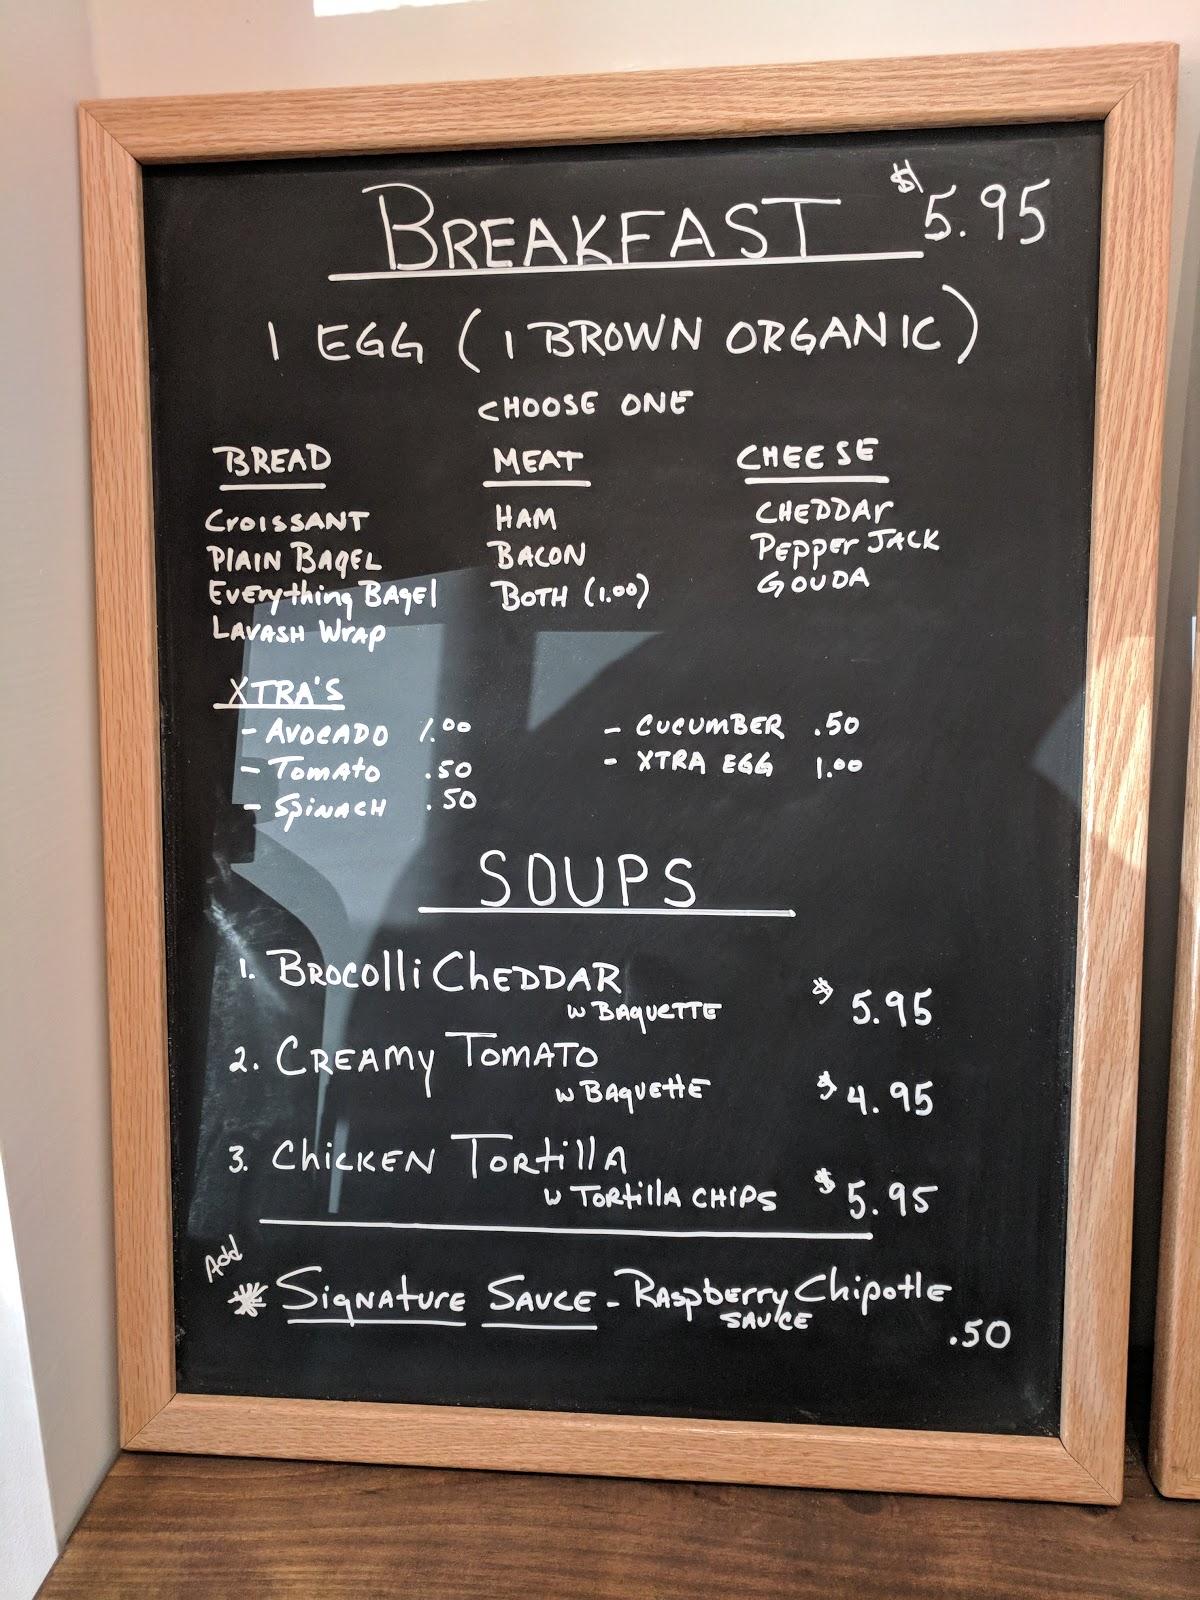 BREAKFAST $5.95
1 EGG (1 BROWN ORGANIC)
CHOOSE ONE
BREAD MEAT CHEESE
CROISSANT HAM CHEDDAR
PLAIN BAGEL BACON PEPPER JACK
EVERYTHING BAGEL BOTH (1.00) GOUDA
LAVASH WRAP
XTRA'S
- AVOCADO 1.00 - CUCUMBER .50
- TOMATO .50 - XTRA EGG 1.00
- SPINACH .50
SOUPS
1. BROCOLLI CHEDDAR
W BAQUETTE $5.95
2. CREAMY TOMATO
W BAQUETTE $4.95
3. CHICKEN TORTILLA
W TORTILLA CHIPS $5.95
Add
* SIGNATURE SAUCE - RASPBERRY CHIPOTLE
SAUCE
.50